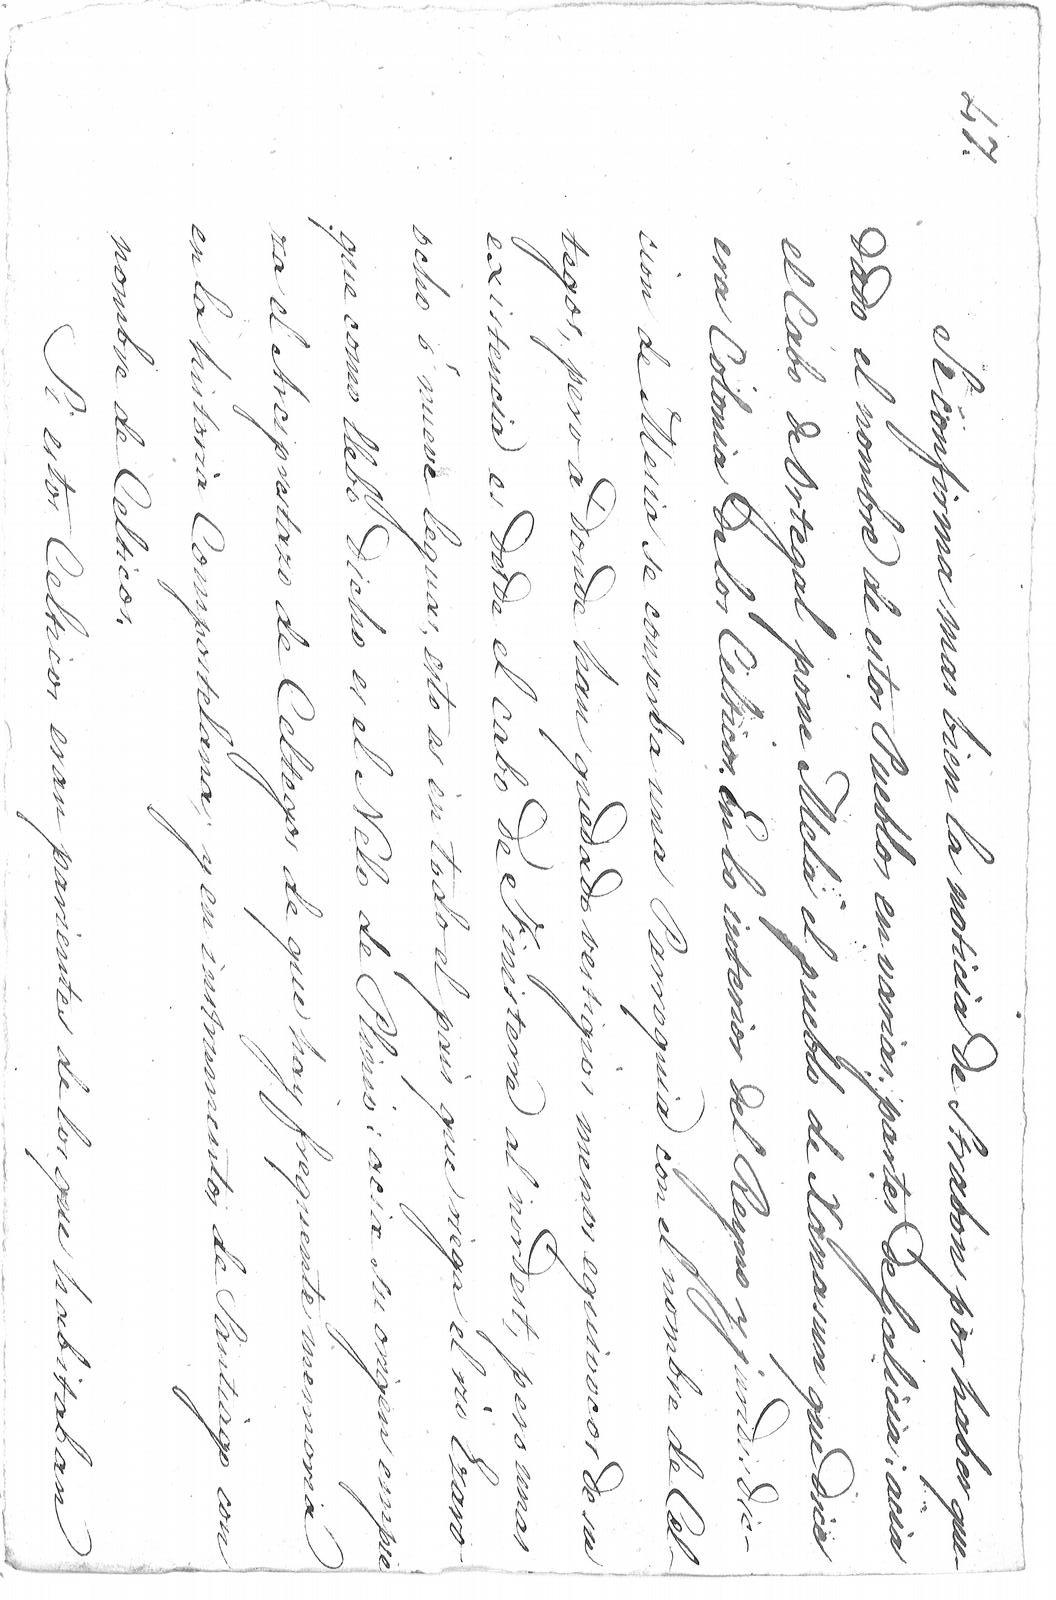 47.
Se confirma mas bien la noticia de Strabon, por haber que-
dado el nombre de estos Pueblos en varias partes de galicia: acia
el Cabo de Ortegal pone Mela el pueblo de que dice
era Colonia de los Celticos. En lo interior del Reyno y jurisdic-
cion de Mesia se conserba una Parroquia con el nombre de Cel-
tegos, pero a donde han quedado vestigios menos equivocos de su
existencia es desde el cabo de Finisterre al nordest, pero unas
ocho ó nueve leguas, esto es en todo el pais que riega el rio Ezaro-
que como llebo dicho es el Nelo de Plinio: acia su origen empie
za el Arciprestazo de Celtegos de que hay frequente memoria
en la historia Compostelana, y en instrumentos de Santiago con
nombre de Celticos.
Si estos Celticos eran parientes de los que habitaban